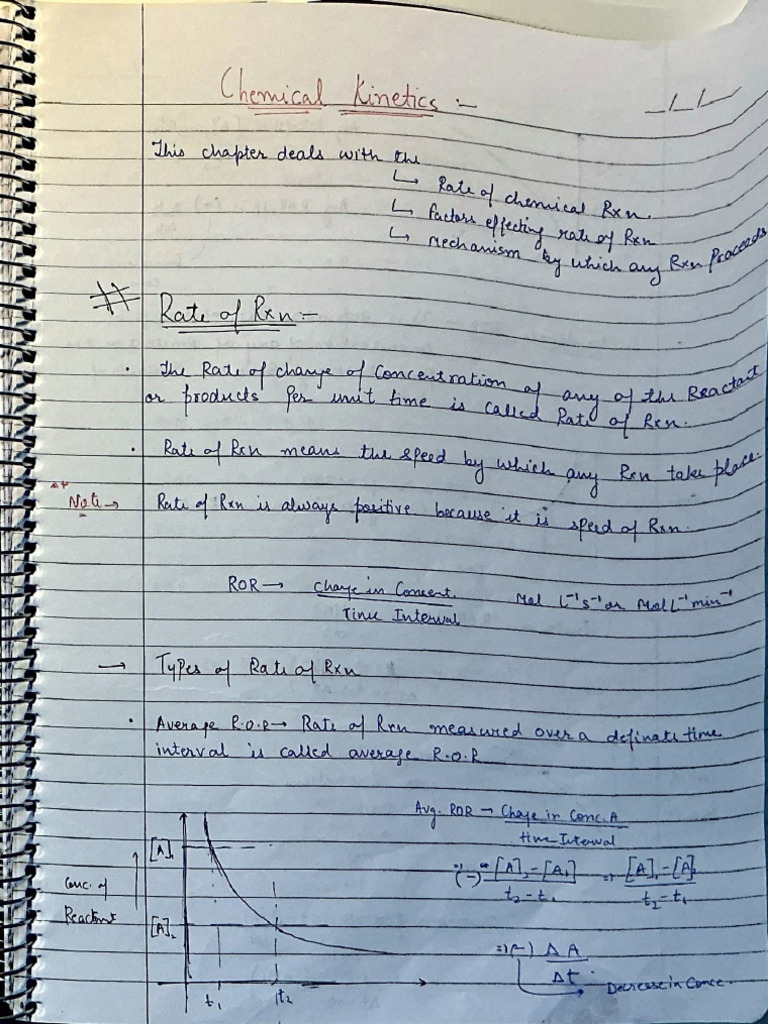 Chemical Kinetics :-
This chapter deals with the
↳ Rate of chemical Rxn.
↳ factors effecting rate of Rxn
↳ mechanism by which any Rxn Proceeds
# Rate of Rxn :-
• The Rate of change of Concentration of any of the Reactant
or products Per unit time is called Rate of Rxn.
• Rate of Rxn means the speed by which any Rxn take place.
** Note → Rate of Rxn is always positive because it is speed of Rxn.
ROR → Change in Concent. / Time Interval Mol L⁻¹s⁻¹ or Mol L⁻¹ min⁻¹
→ Types of Rate of Rxn
• Average R.O.R → Rate of Rxn measured over a definate time
interval is called average R.O.R
Avg. ROR → Change in Conc. A / time Interval
(-) [A]₂ - [A₁] / t₂ - t₁ ⇒ [A]₁ - [A]₂ / t₂ - t₁
⇒ (-) ΔA / Δt
Decrease in Conce.
[A]₁
Conc. of
Reactant
[A]₂
t₁ t₂